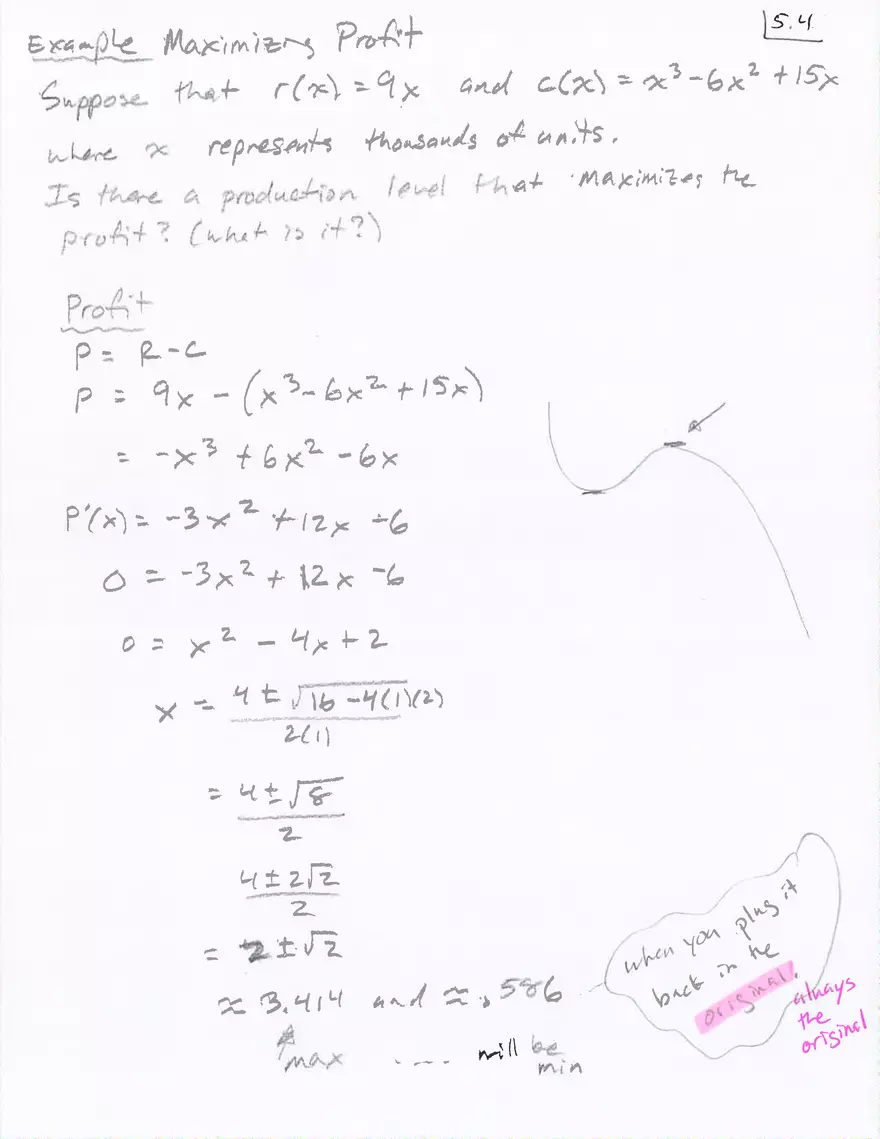 5.4
Example Maximizing Profit
Suppose that r(x) = 9x and c(x) = x³ - 6x² + 15x
where x represents thousands of units.
Is there a production level that maximizes the
profit? (what is it?)
Profit
P = R - C
P = 9x - (x³ - 6x² + 15x)
= -x³ + 6x² - 6x
P'(x) = -3x² + 12x - 6
0 = -3x² + 12x - 6
0 = x² - 4x + 2
x = (4 ± √(16 - 4(1)(2)))/(2(1))
= (4 ± √8)/2
(4 ± 2√2)/2
= 2 ± √2
≈ 3.414 and ≈ .586
max .... will be
min
when you plug it
back in the
original.
always
the
original